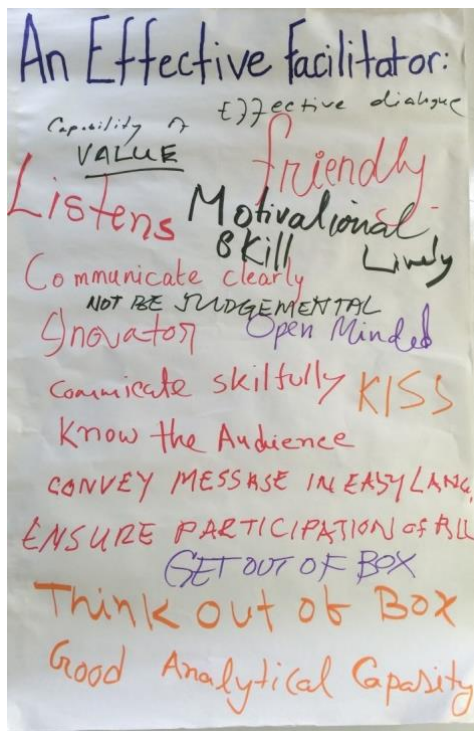 An Effective Facilitator:
Effective dialogue
Capability of
VALUE
friendly
Listens
Motivational
Skill
Lively
Communicate clearly
NOT BE JUDGEMENTAL
Inovator
Open Minded
Commicate skilfully
KISS
Know the Audience
CONVEY MESSASE IN EASY LANG.
ENSURE PARTICIPATION of ALL
GET OUT OF BOX
Think out of Box
Good Analytical Capasity